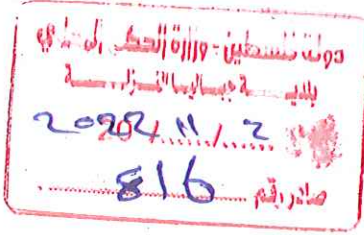 دولة فلسطين - وزارة الحكم المحلي
بلدية جباليا النزلة
2022/11/2
صادر رقم 816